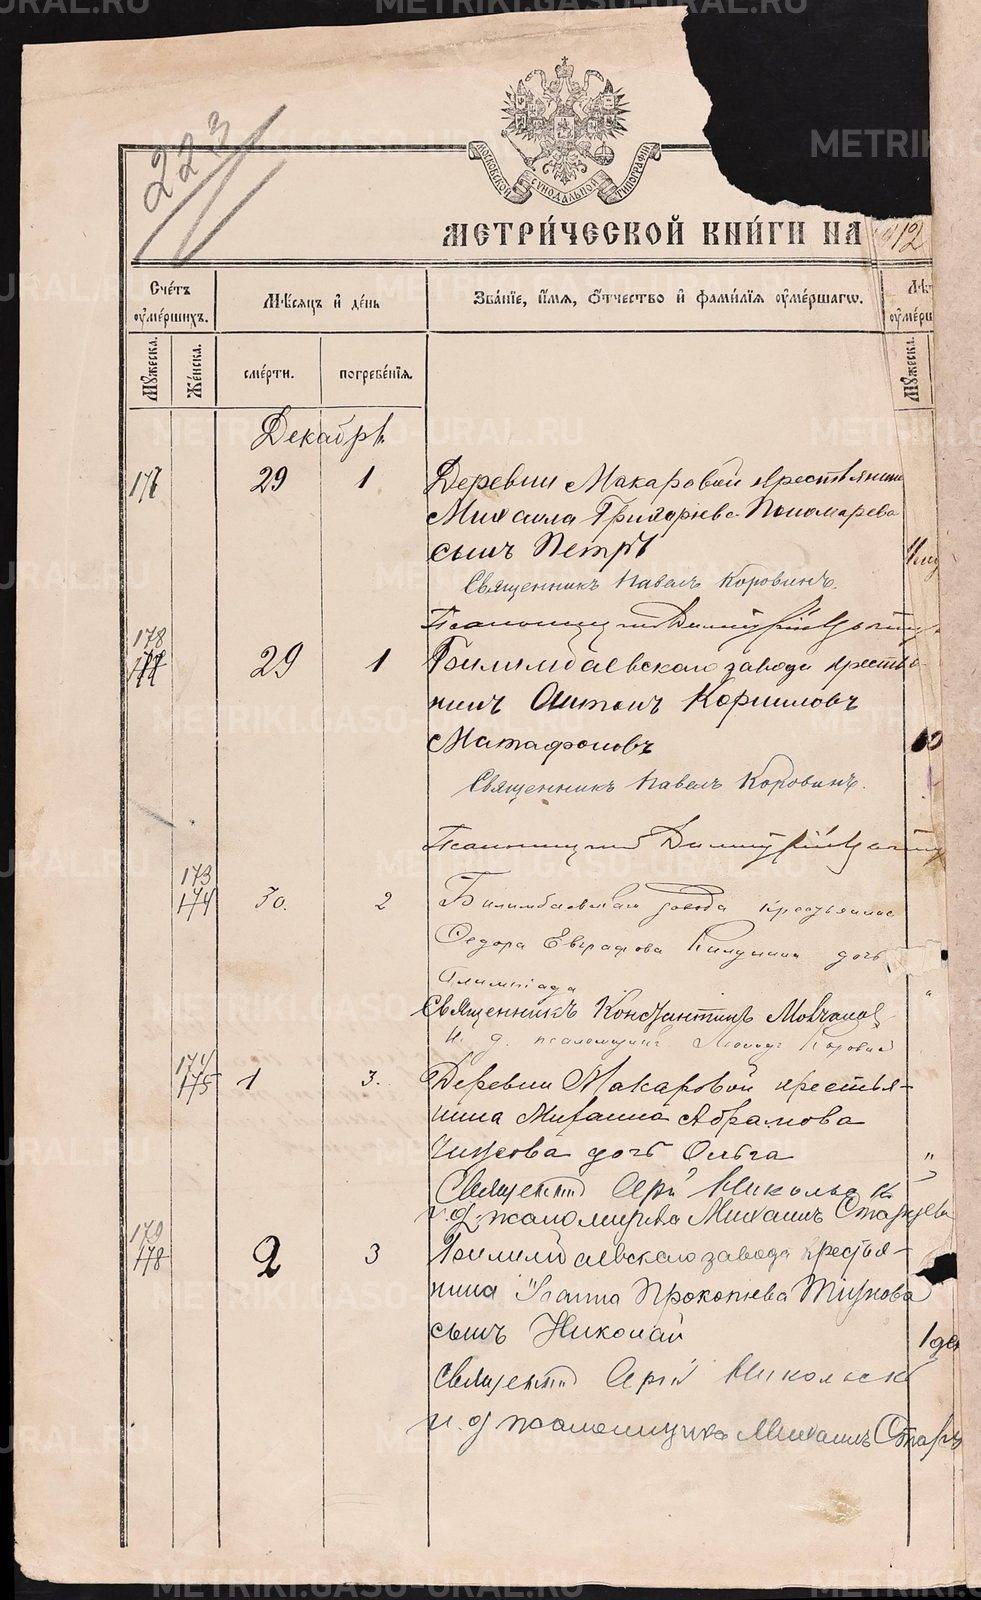 223
МОСКОВСКОЙ СѴНОДАЛЬНОЙ ТИПОГРАФИИ
МЕТРИ́ЧЕСКОЙ КНИ́ГИ НА 1912
Сче́тъ оу҆ме́ршихъ.
Мѣ́сяцъ и҆ де́нь
Зва́нїе, и҆́мя, ѻ҆́тчество и҆ фами́лїя оу҆ме́ршагѡ.
Лѣт оу҆ме́рш
Мꙋ́жеска.
Же́нска.
сме́рти.
погребе́нїя.
Мꙋ́жеска
Декабрь
177 29 1 Деревни Макаровой крестьянина
Михаила Григорьева Пономарева
сынъ Петръ
Священникъ Павелъ Коровинъ.
Псаломщикъ Димитрій
178
177 29 1 Билимбаевскаго завода крестья-
нинъ Антонъ Корниловъ
Матафоновъ
Священникъ Павелъ Коровинъ.
Псаломщикъ Димитрій
173
174 30. 2 Билимбаевскаго завода крестьянина
Ѳедора Евграфова дочь
Олимпіада
Священникъ Константинъ Молчанов
И. д. псаломщика Леонидъ Коровин
174
175 1 3. Деревни Макаровой крестья-
нина Михаила Абрамова
дочь Ольга
Священник Арк Никольск
и. д. псаломщика Михаилъ Старцев
179
178 2 3 Билимбаевскаго завода крестья-
нина Іоанна Прокопьева
сынъ Николай 1 ден
Священник Арк Никольск
и. д. псаломщика Михаилъ Старц